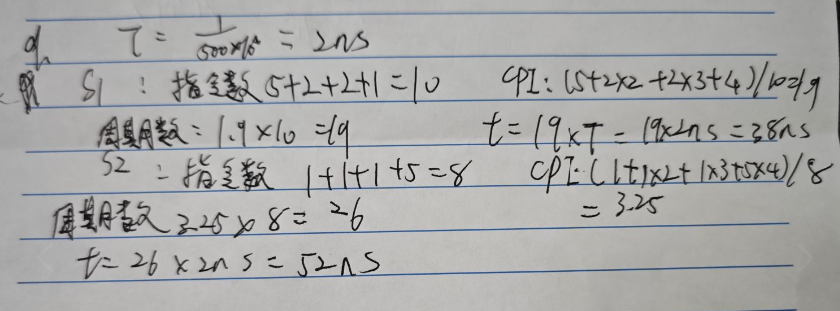 9. T = 1/(500×10⁶) = 2ns
解 S1 : 指令数 5+2+2+1=10 CPI: (5+2×2+2×3+4)/10=1.9
周期数: 1.9×10=19 t= 19×T = 19×2ns=38ns
S2 : 指令数 1+1+1+5=8 CPI: (1+1×2+1×3+5×4)/8
周期数 3.25×8=26 = 3.25
t= 26×2ns = 52ns